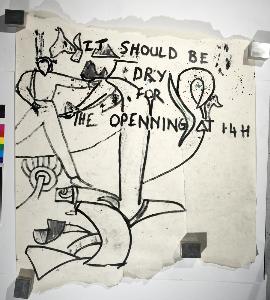 IT SHOULD BE
DRY
FOR
THE OPENNING AT 14H